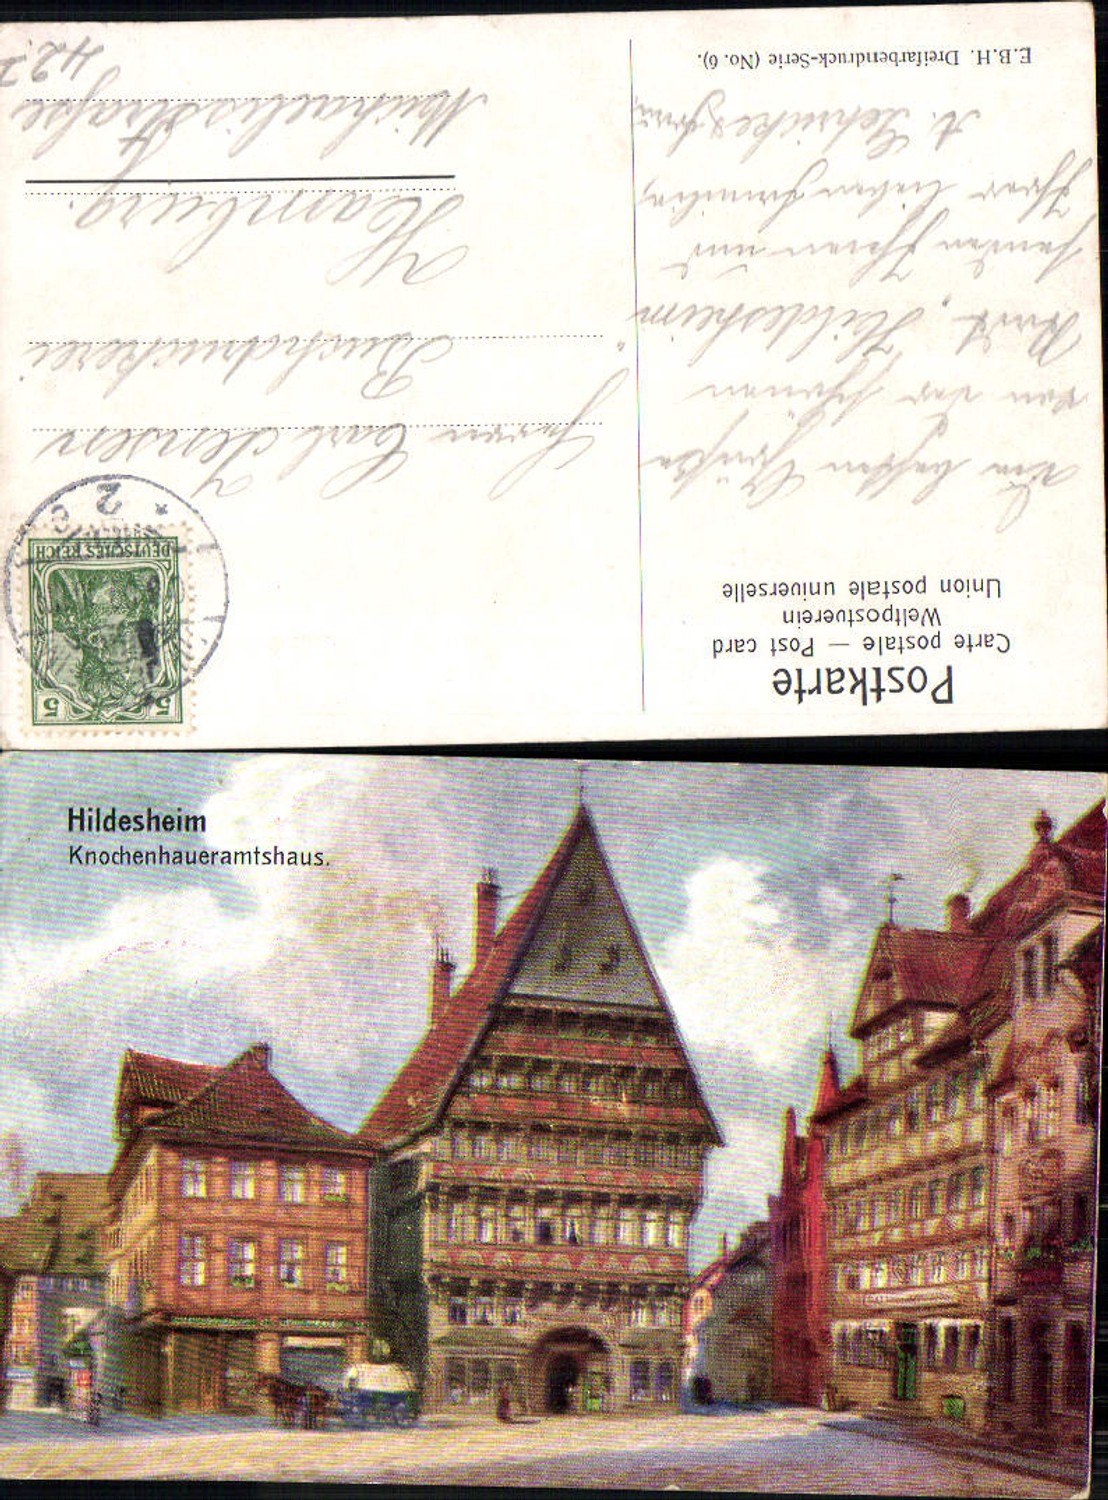 Postkarte
Carte postale — Post card
Weltpostverein
Union postale universelle
Die besten Grüße
von der schönen
Stadt Hildesheim
senden Ihnen und
Ihrer lieben Familie
A. Gehricke & Frau
E.B.H. Dreifarbendruck-Serie (No. 6).
DEUTSCHES REICH
5 5
Herrn Carl Jensen
Buchdruckerei
Hamburg.
4
Michaelisstraße
42
Hildesheim
Knochenhaueramtshaus.